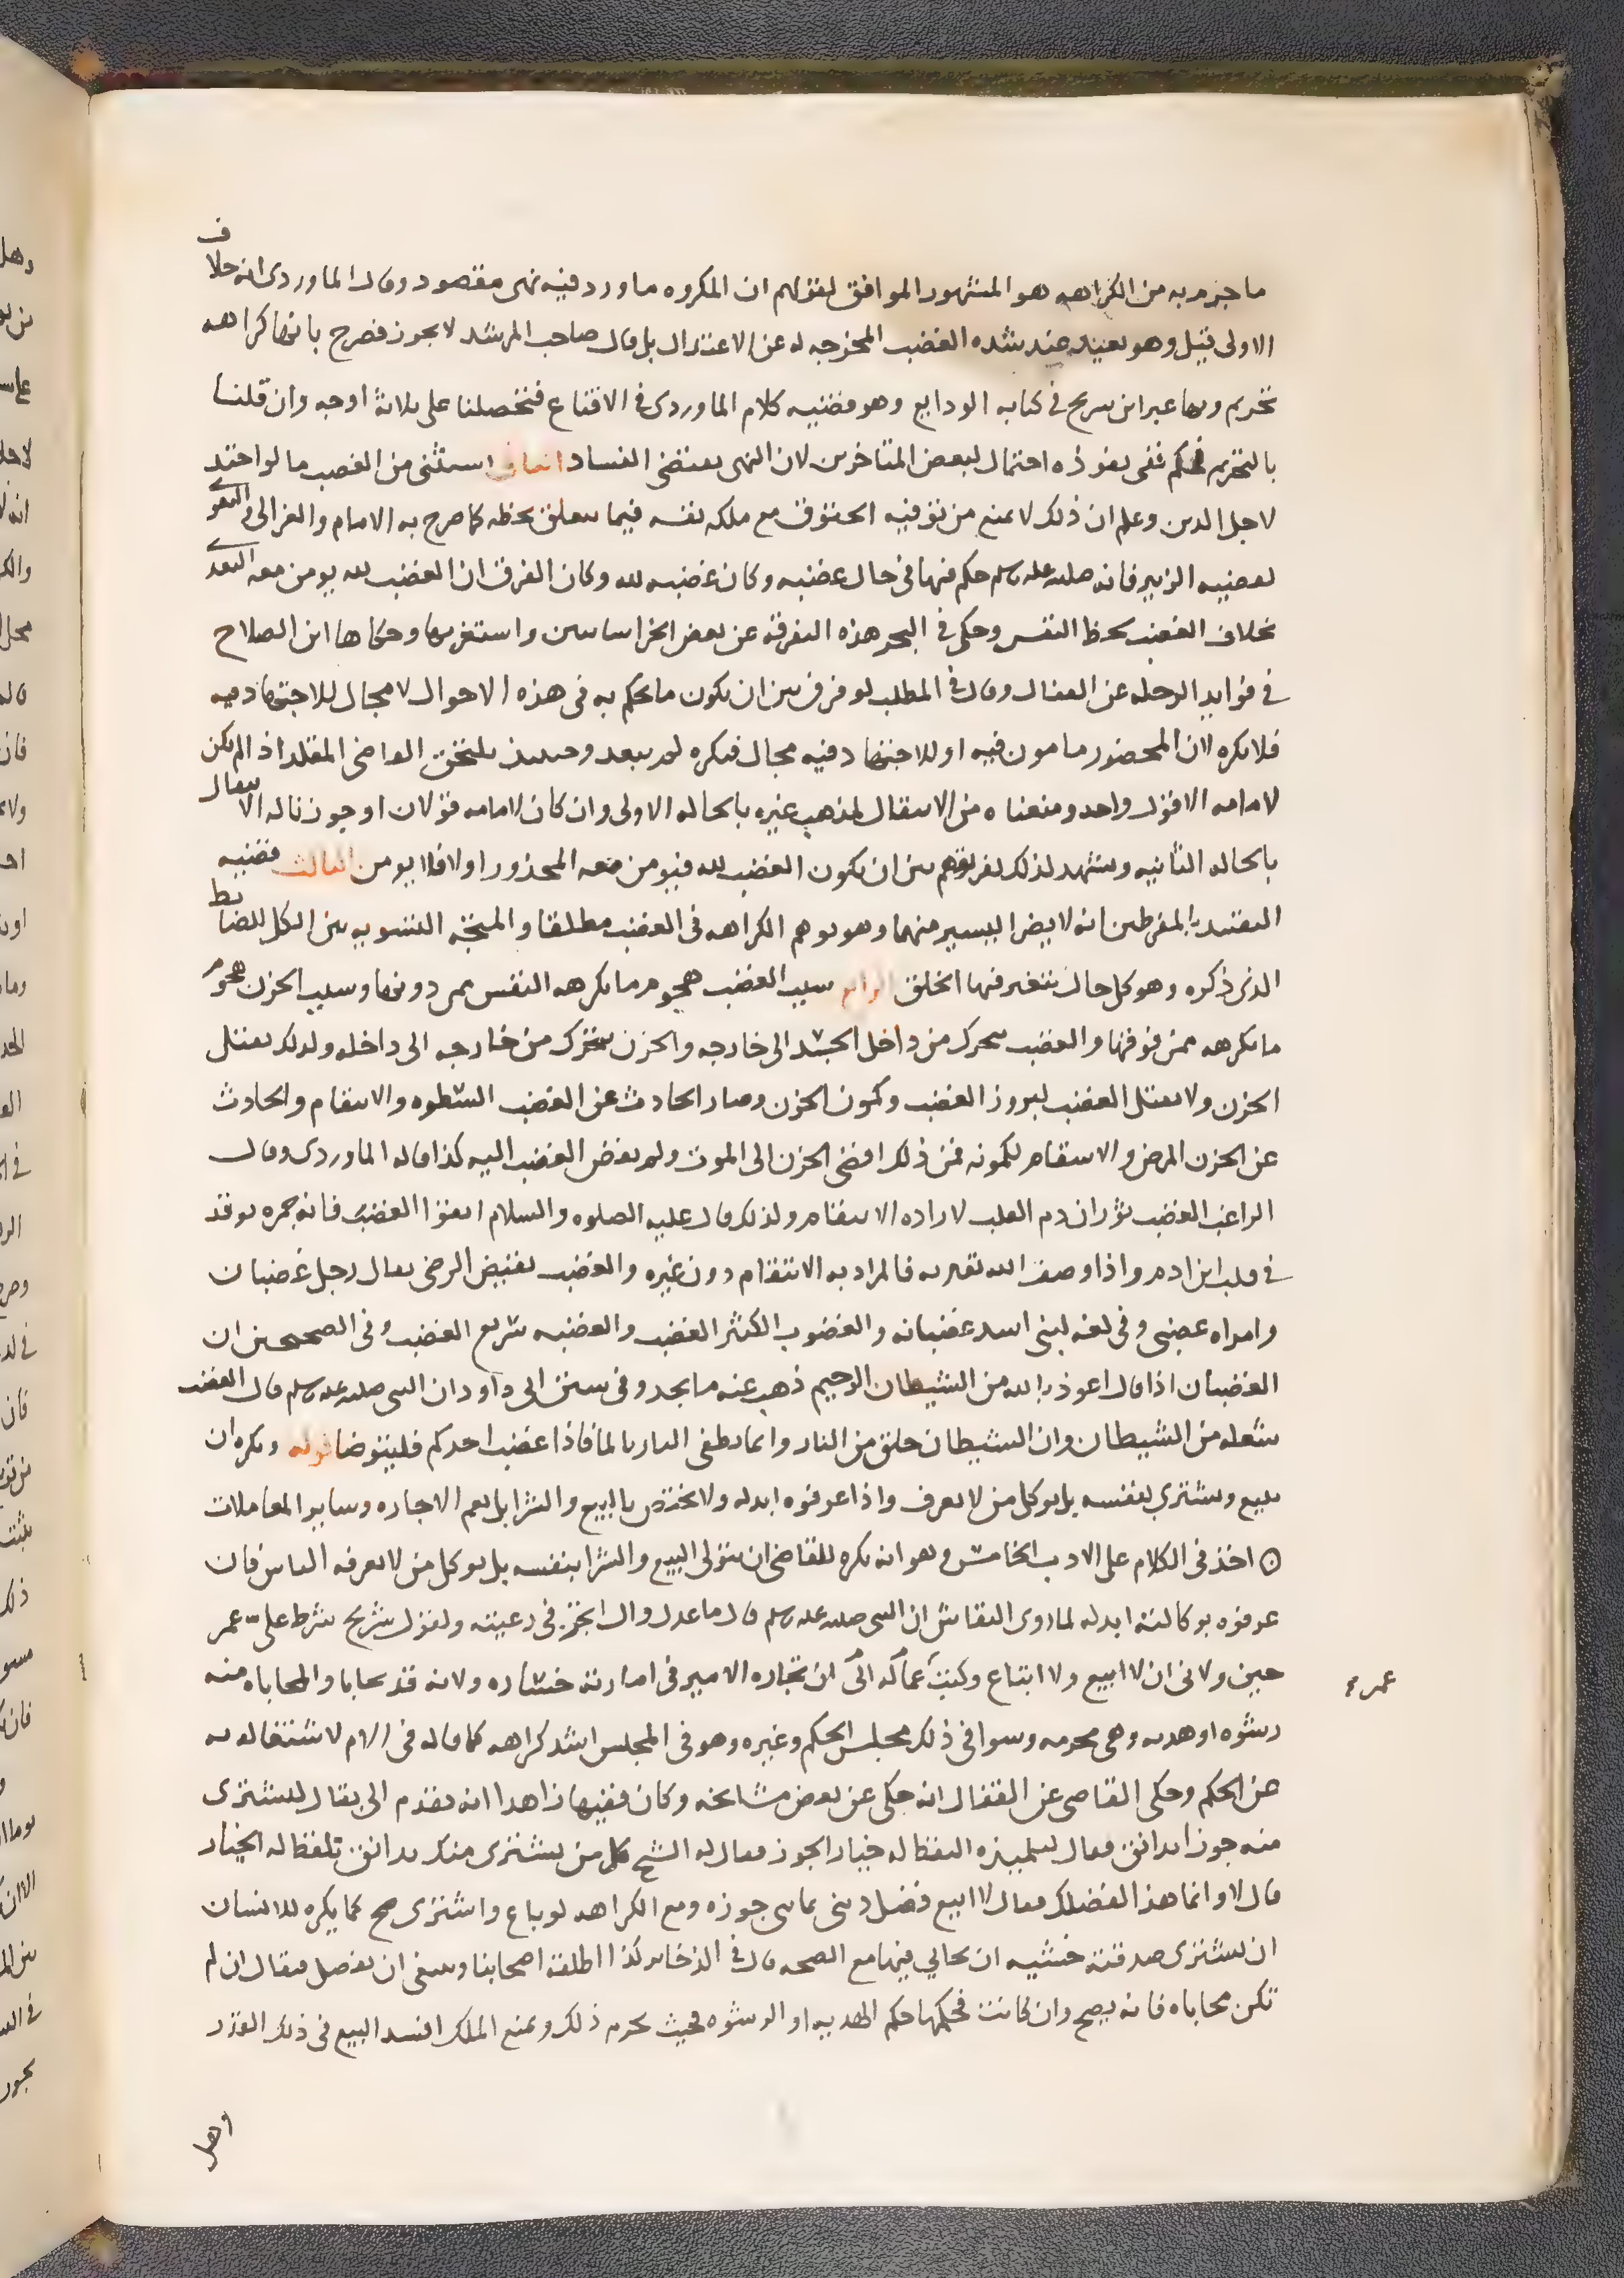 ما جزم به من الكراهه هو المشهور الموافق لقولهم ان المكروه ما ورد فيه نهى مقصود وقال الماوردى انه خلاف
الاولى قيل وهو بعيد عند شده الغضب المخرجه له عن الاعتدال بل قال صاحب المرشد لا يجوز فصرح بانها كراهه
تحريم وبها عبر ابن سريح في كتابه الودايع وهو قضيه كلام الماوردى في الاقناع فتحصلنا على ثلاثة اوجه وان قلنا
بالتحريم فحكم ففى نفوذه احتمال لبعض المتاخرين لان النهى يقتضى الفساد الثانى استثنى من الغضب ما لو احتد
لاجل الدين وعلم ان ذلك لا يمنع من توفيه الحقوق مع ملكه نفسه فيما يتعلق بحظه كما صرح به الامام والغزالى والبغوى
لقضيه الزبير فانه صلى الله عليه وسلم حكم فيها فى حال غضبه وكان غضبه لله وكان الفرق ان الغضب لله يومن معه التعدى
بخلاف الغضب لحظ النفس وحكى في البحر هذه التفرقه عن بعض الخراسانيين واستغربها وحكاها ابن الصلاح
في فوايد الرحله عن القفال وقال في المطلب لو فرق بين ان يكون ما يحكم به فى هذه الاحوال لا مجال للاجتهاد فيه
فلا يكره لان المحضور مامون فيه او للاجتهاد فيه مجال فيكره لم يبعد وحينئذ يلتحق القاضى المقلد اذ لم يكن
لامامه الا قول واحد ومنعناه من الانتقال لمذهب غيره بالحاله الاولى وان كان لامامه قولان او جوزنا له الانتقال
بالحاله الثانيه ويشهد لذلك تفريقهم بين ان يكون الغضب لله فيومن معه المحذور او لا فلا يومن الثالث قضيه
التقييد بالمفرطين انه لا يضر اليسير منهما وهو يوهم الكراهه فى الغضب مطلقا والمتجه التسويه بين الكل للضابط
الذى ذكره وهو كل حال يتغير فيها الخلق الرابع سبب الغضب هجوم ما يكرهه النفس ممن دونها وسبب الحزن هجوم
ما يكرهه ممن فوقها والغضب يتحرك من داخل الجسد الى خارجه والحزن يتحرك من خارجه الى داخله ولذلك يقتل
الحزن ولا يقتل الغضب لبروز الغضب وكمون الحزن وصار الحادث عن الغضب السطوه والانتقام والحادث
عن الحزن المرض والاسقام لكمونه فمن ذلك افضى الحزن الى الموت ولم يفض الغضب اليه كذا قاله الماوردى وقال
الراغب الغضب ثوران دم القلب لاراده الانتقام ولذلك قال عليه الصلوه والسلام اتقوا الغضب فانه جمره توقد
في قلب ابن ادم واذا وصف الله تعالى به فالمراد به الانتقام دون غيره والغضب نقيض الرضى يقال رجل غضبان
وامراه غضبى وفى لغه لبنى اسد غضبانه والغضوب الكثير الغضب والغضبه سريع الغضب وفى الصحيحين ان
الغضبان اذا قال اعوذ بالله من الشيطان الرجيم ذهب عنه ما يجد وفى سنن ابى داود ان النبى صلى الله عليه وسلم قال الغضب
شعله من الشيطان وان الشيطان خلق من النار وانما يطفى النار بالما فاذا غضب احدكم فليتوضا قوله ويكره ان
يبيع ويشترى بنفسه بل يوكل من لا يعرف واذا عرفوه ابدله ولا يختص بالبيع والشرا بل يعم الاجاره وساير المعاملات
⊙ اخذ فى الكلام على الادب الخامس وهو انه يكره للقاضى ان يتولى البيع والشرا بنفسه بل يوكل من لا يعرفه الناس فان
عرفوه بوكالته ابدله لما روى النقاش ان النبى صلى الله عليه وسلم قال ما عدل وال اتجر فى رعيته ولقول شريح شرط على عمر
حين ولانى ان لا ابيع ولا ابتاع وكتب عماله الى ان تجاره الامير فى امارته خساره ولانه قد يحابا والمحاباه منه
عمر
رشوه او هديه وهى محرمه وسوا فى ذلك مجلس الحكم وغيره وهو فى المجلس اشد كراهه كما قاله فى الام لاشتغاله به
عن الحكم وحكى القاضى عن القفال انه حكى عن بعض مشايخه وكان فقيها زاهدا انه تقدم الى بقال ليشترى
منه جوزا بدانق فقال لتلميذه القط له خيار الجوز فقال له الشيخ كل من يشترى منك بدانق تلقط له الخيار
قال لا وانما هذا لفضلك فقال لا ابيع فضل دينى بما بين جوزه ومع الكراهه لو باع واشترى صح كما يكره للانسان
ان يشترى صدقته خشيه ان يحابى فيها مع الصحه قال في الذخاير كذا اطلقه اصحابنا وينبغى ان يفصل فيقال ان لم
تكن محاباه فانه يصح وان كانت فحكمها حكم الهديه او الرشوه فحيث يحرم ذلك ويمنع الملك افسد البيع فى ذلك القدر
وهل